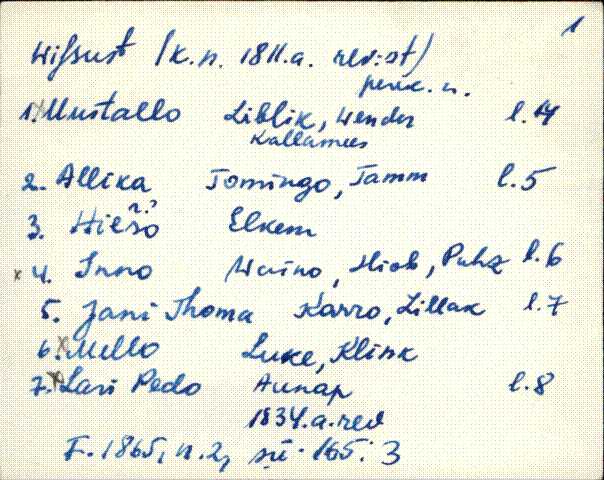 1
Wissust (k.n. 1811.a. rev.st)
perek. n.
1. Mustallo Liblik, Wender l. 4
Kallamees
2. Allika Tomingo, Tamm l. 5
3. Hieso Elkem
r.?
4. Inno Waino, Hiob, Puhz l. 6
5. Jani Thoma Karro, Lillak l. 7
6. Mello Luke, Klink
7. Lari Pedo Aunap l. 8
1834.a.rev
F. 1865, n. 2, sü. 165: 3